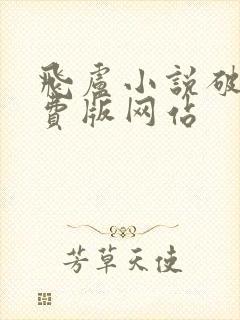 飛盧小説破
費版网佔
芳草天使